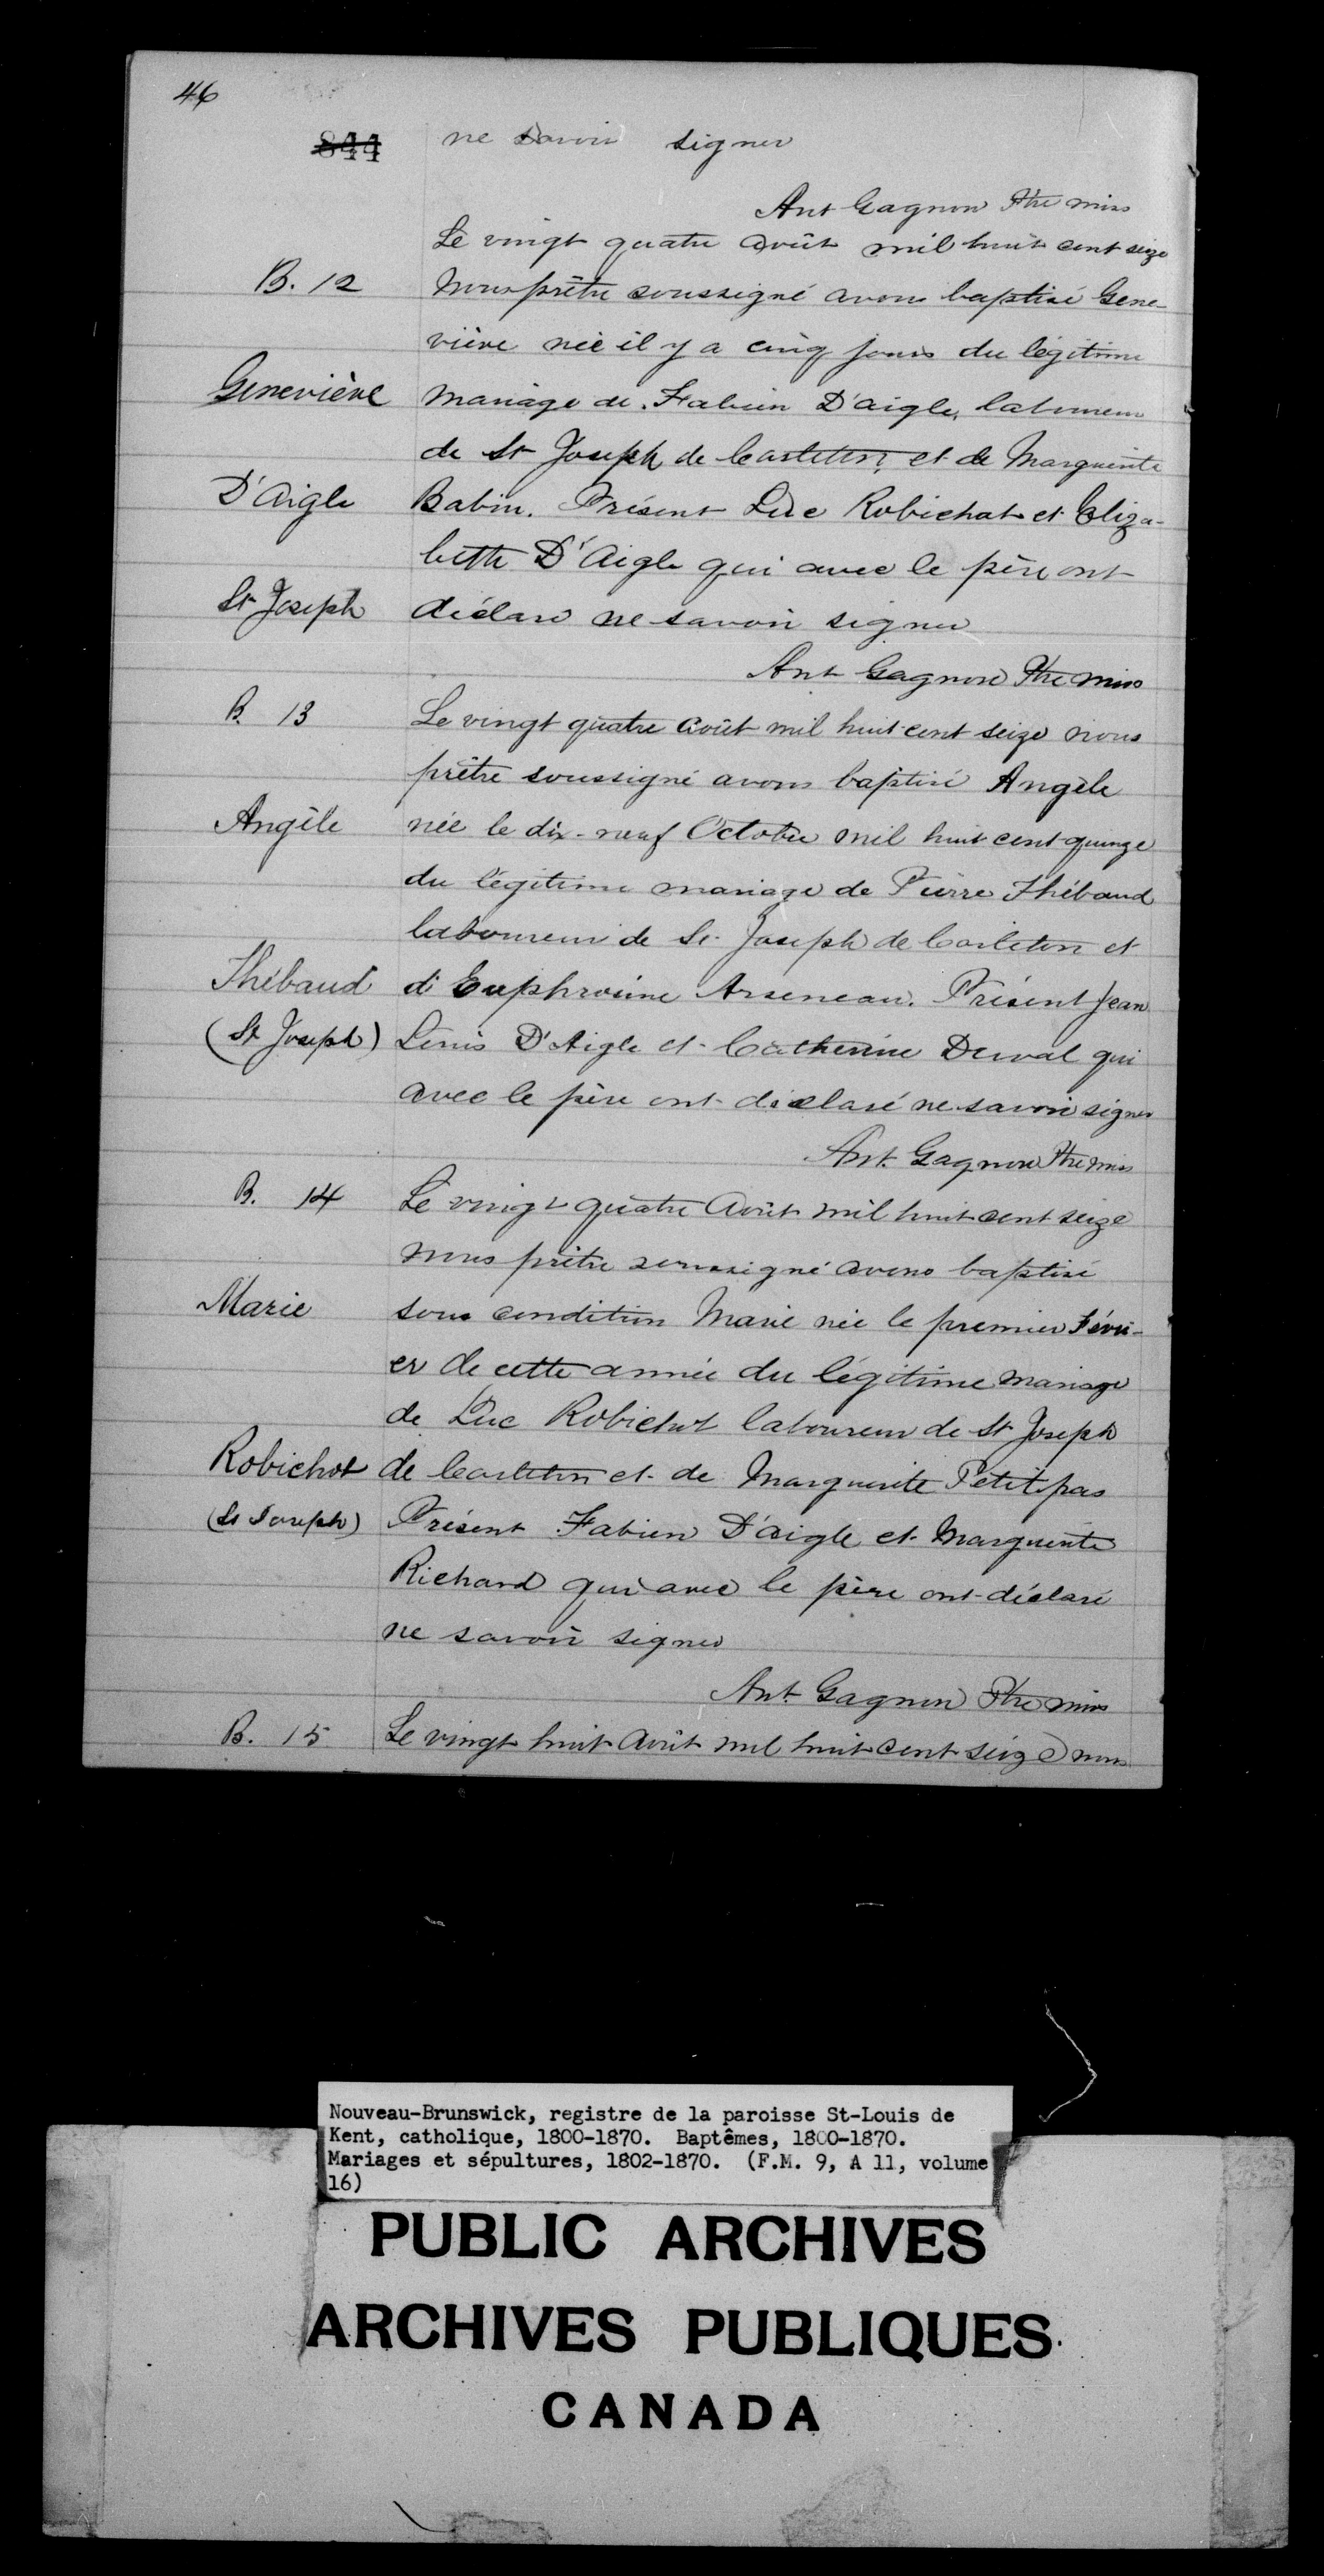 46
844
ne savoir signer
Ant Gagnon Ptre miss
Le vingt quatre août mil huit cent seize
B. 12 Nous prêtre soussigné avons baptisé Gene-
viève née il y a cinq jours du légitime
Geneviève mariage de Fabien D'aigle, laboureur
de St Joseph de Carleton, et de Marguerite
D'Aigle Babin. Présent Luc Robichat et Eliza-
beth D'Aigle qui avec le père ont
St Joseph déclaré ne savoir signer
Ant Gagnon Ptre miss
B. 13 Le vingt quatre août mil huit cent seize nous
prêtre soussigné avons baptisé Angèle
Angèle née le dix-neuf Octobre mil huit cent quinze
du légitime mariage de Pierre Thébaud
laboureur de St Joseph de Carleton et
Thébaud d'Euphrosine Arseneau. Présent Jean
(St Joseph) Denis D'Aigle et Catherine Derval qui
avec le père ont déclaré ne savoir signer
Ant. Gagnon Ptre miss
B. 14 Le vingt quatre Août mil huit cent seize
nous prêtre soussigné avons baptisé
Marie sous condition Marie née le premier Févri-
er de cette année du légitime mariage
de Luc Robichot laboureur de St Joseph
Robichot de Carleton et de Marguerite Petitpas
(St Joseph) Présent Fabien D'aigle et Marguerite
Richard qui avec le père ont déclaré
ne savoir signer
Ant. Gagnon Ptre miss
B. 15 Le vingt huit Août mil huit cent seize nous
Nouveau-Brunswick, registre de la paroisse St-Louis de
Kent, catholique, 1800-1870. Baptêmes, 1800-1870.
Mariages et sépultures, 1802-1870. (F.M. 9, A 11, volume
16)
PUBLIC ARCHIVES
ARCHIVES PUBLIQUES
CANADA